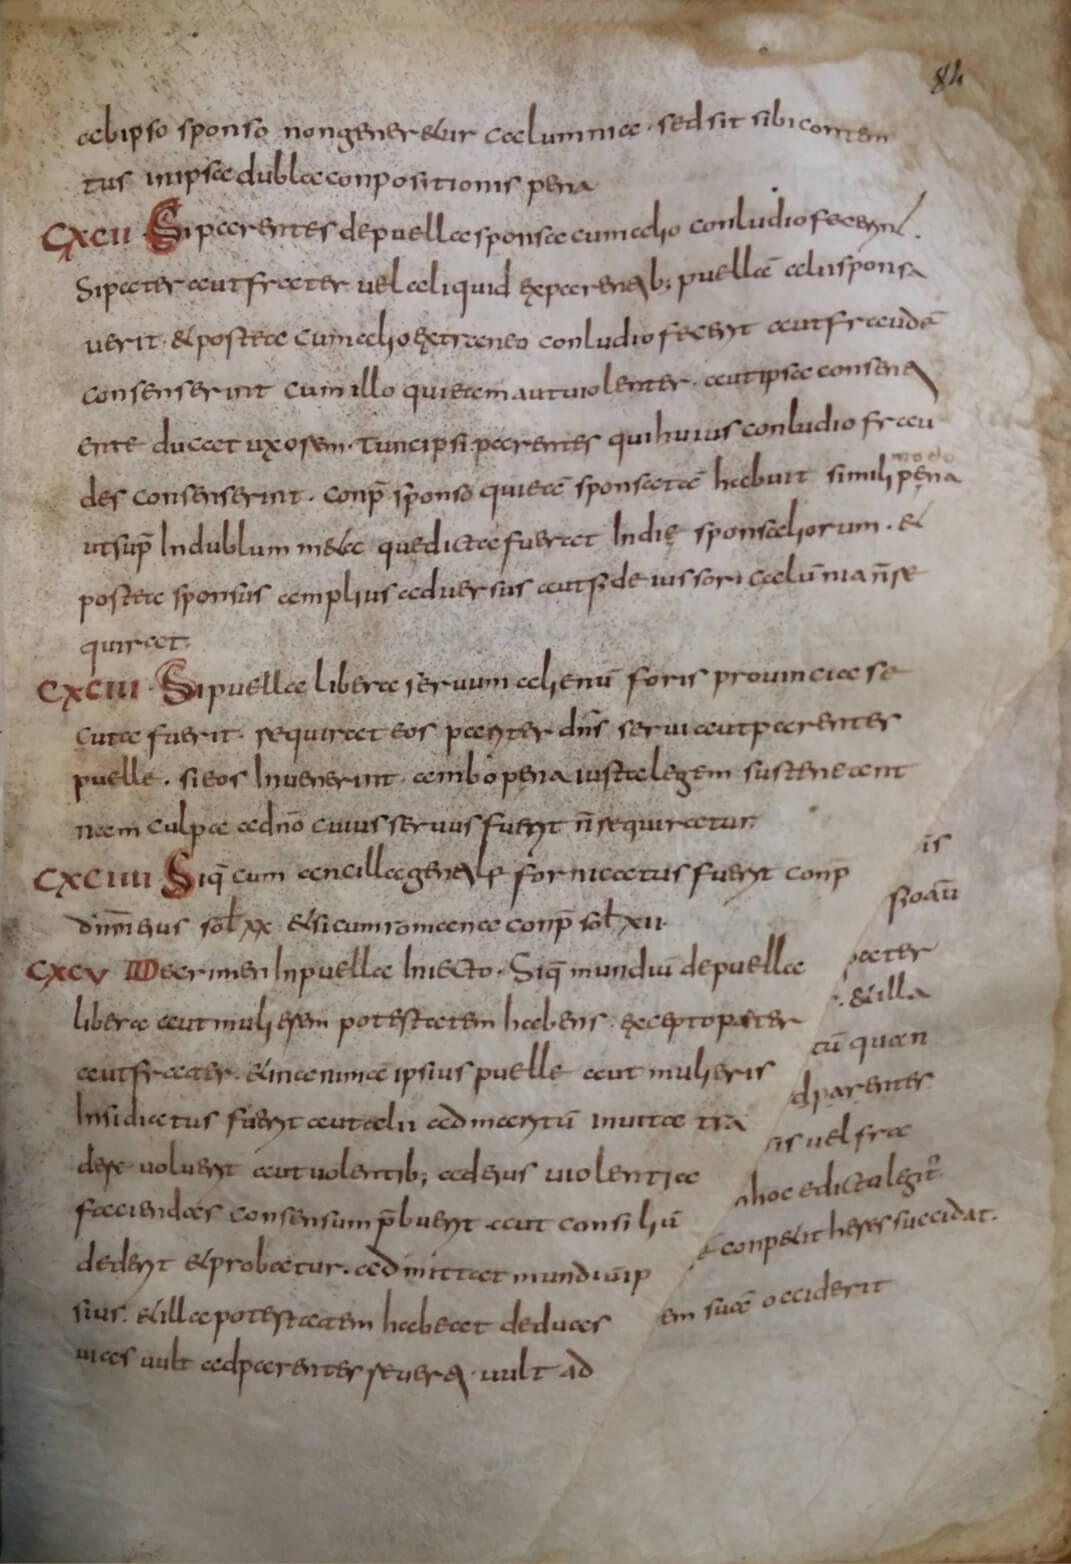 84
ab ipso sponso non generetur calumnia · sed sit sibi conten
tus in ipsa dubla conpositionis pena
CXCII Si parentes de puella sponsa cum alio conludio fecerint.
Si pater aut frater vel aliquid ex parentib; puellā alii sponsa
verit · et postea cum alio extraneo conludio fecerit aut fraudē
consenserint cum illo qui eam aut violenter · aut ipsa consen
ente ducat uxorem · Tunc ipsi parentes qui huius conludio frau
des consenserint · conp̄ sponso qui eā sponsatā habuit simili modo pena
ut sup̄ In dublum meta que dicta fuerat In die sponsaliorum · et
postea sponsus amplius adversus aut fideiussori calūnia n̄ re
quirat
CXCIII · Si puella libera servum alienū foris provincia se
cuta fuerit · requirat eos pariter dn̄s servi aut parentes
puelle · si eos Invenerint · ambo pena iusta legem susteneant
nam culpa ad dn̄o cuius servus fuerit n̄ requiratur
CXCIIII Siq̄ cum ancilla gentile fornicatus fuerit conp̄
dn̄m eius sol̄ xx et si cum romana conp̄ sol̄ xii·
CXCV De crimen In puella Iniecto · Siq̄ mundiū de puella
libera aut mulierem potestatem habens · excepto pater
aut frater · et in animā ipsius puelle aut mulieris
Insidiatus fuerit aut alii ad maritū invita tra
dere voluerit aut volentib; ad eius violentia
faciendas consensum p̄buerit aut consiliū
dederit et probatur · admittat mundiū ip
sius · et illa potestatem habeat de duas
vias vult ad parentes reverti · vult ad
is
pater
· et illa
tū quan
d parentes
is vel fra
hoc edicta legit
conpetit heres succidat ·
em suā occiderit